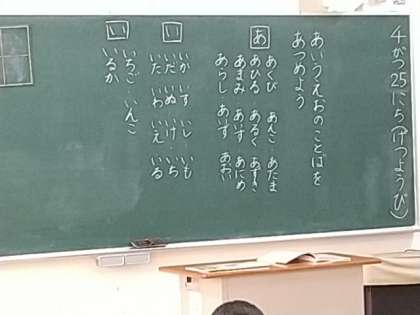 4がつ25にち(げつようび)
あいうえおのことばを
あつめよう
あ
あくび あんこ あたま
あひる あるく あずき
あまみ あいす あにめ
あらし あいす あおい
い
いか いす いし いも
いだ いぬ いけ いち
いた いわ いえ いる
い
いちご いんこ
いるか